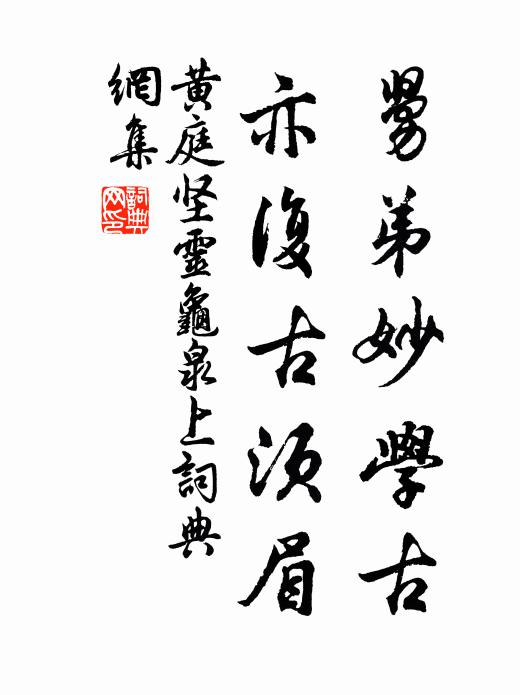 舅弟妙學古
亦復古須眉
黃庭坚靈龜泉上詞典
網集
詞典
网印